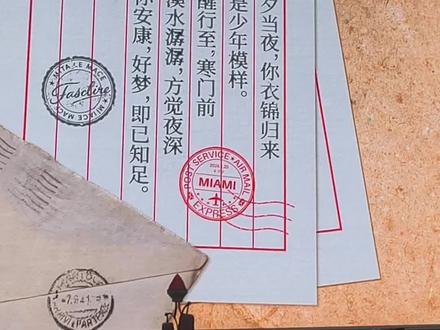 夕当夜，你衣锦归来
是少年模样。
醒行至，寒门前
溪水潺潺，方觉夜深
你安康，好梦，即已知足。
POST SERVICE • AIR MAIL
MIAMI
EXPRESS